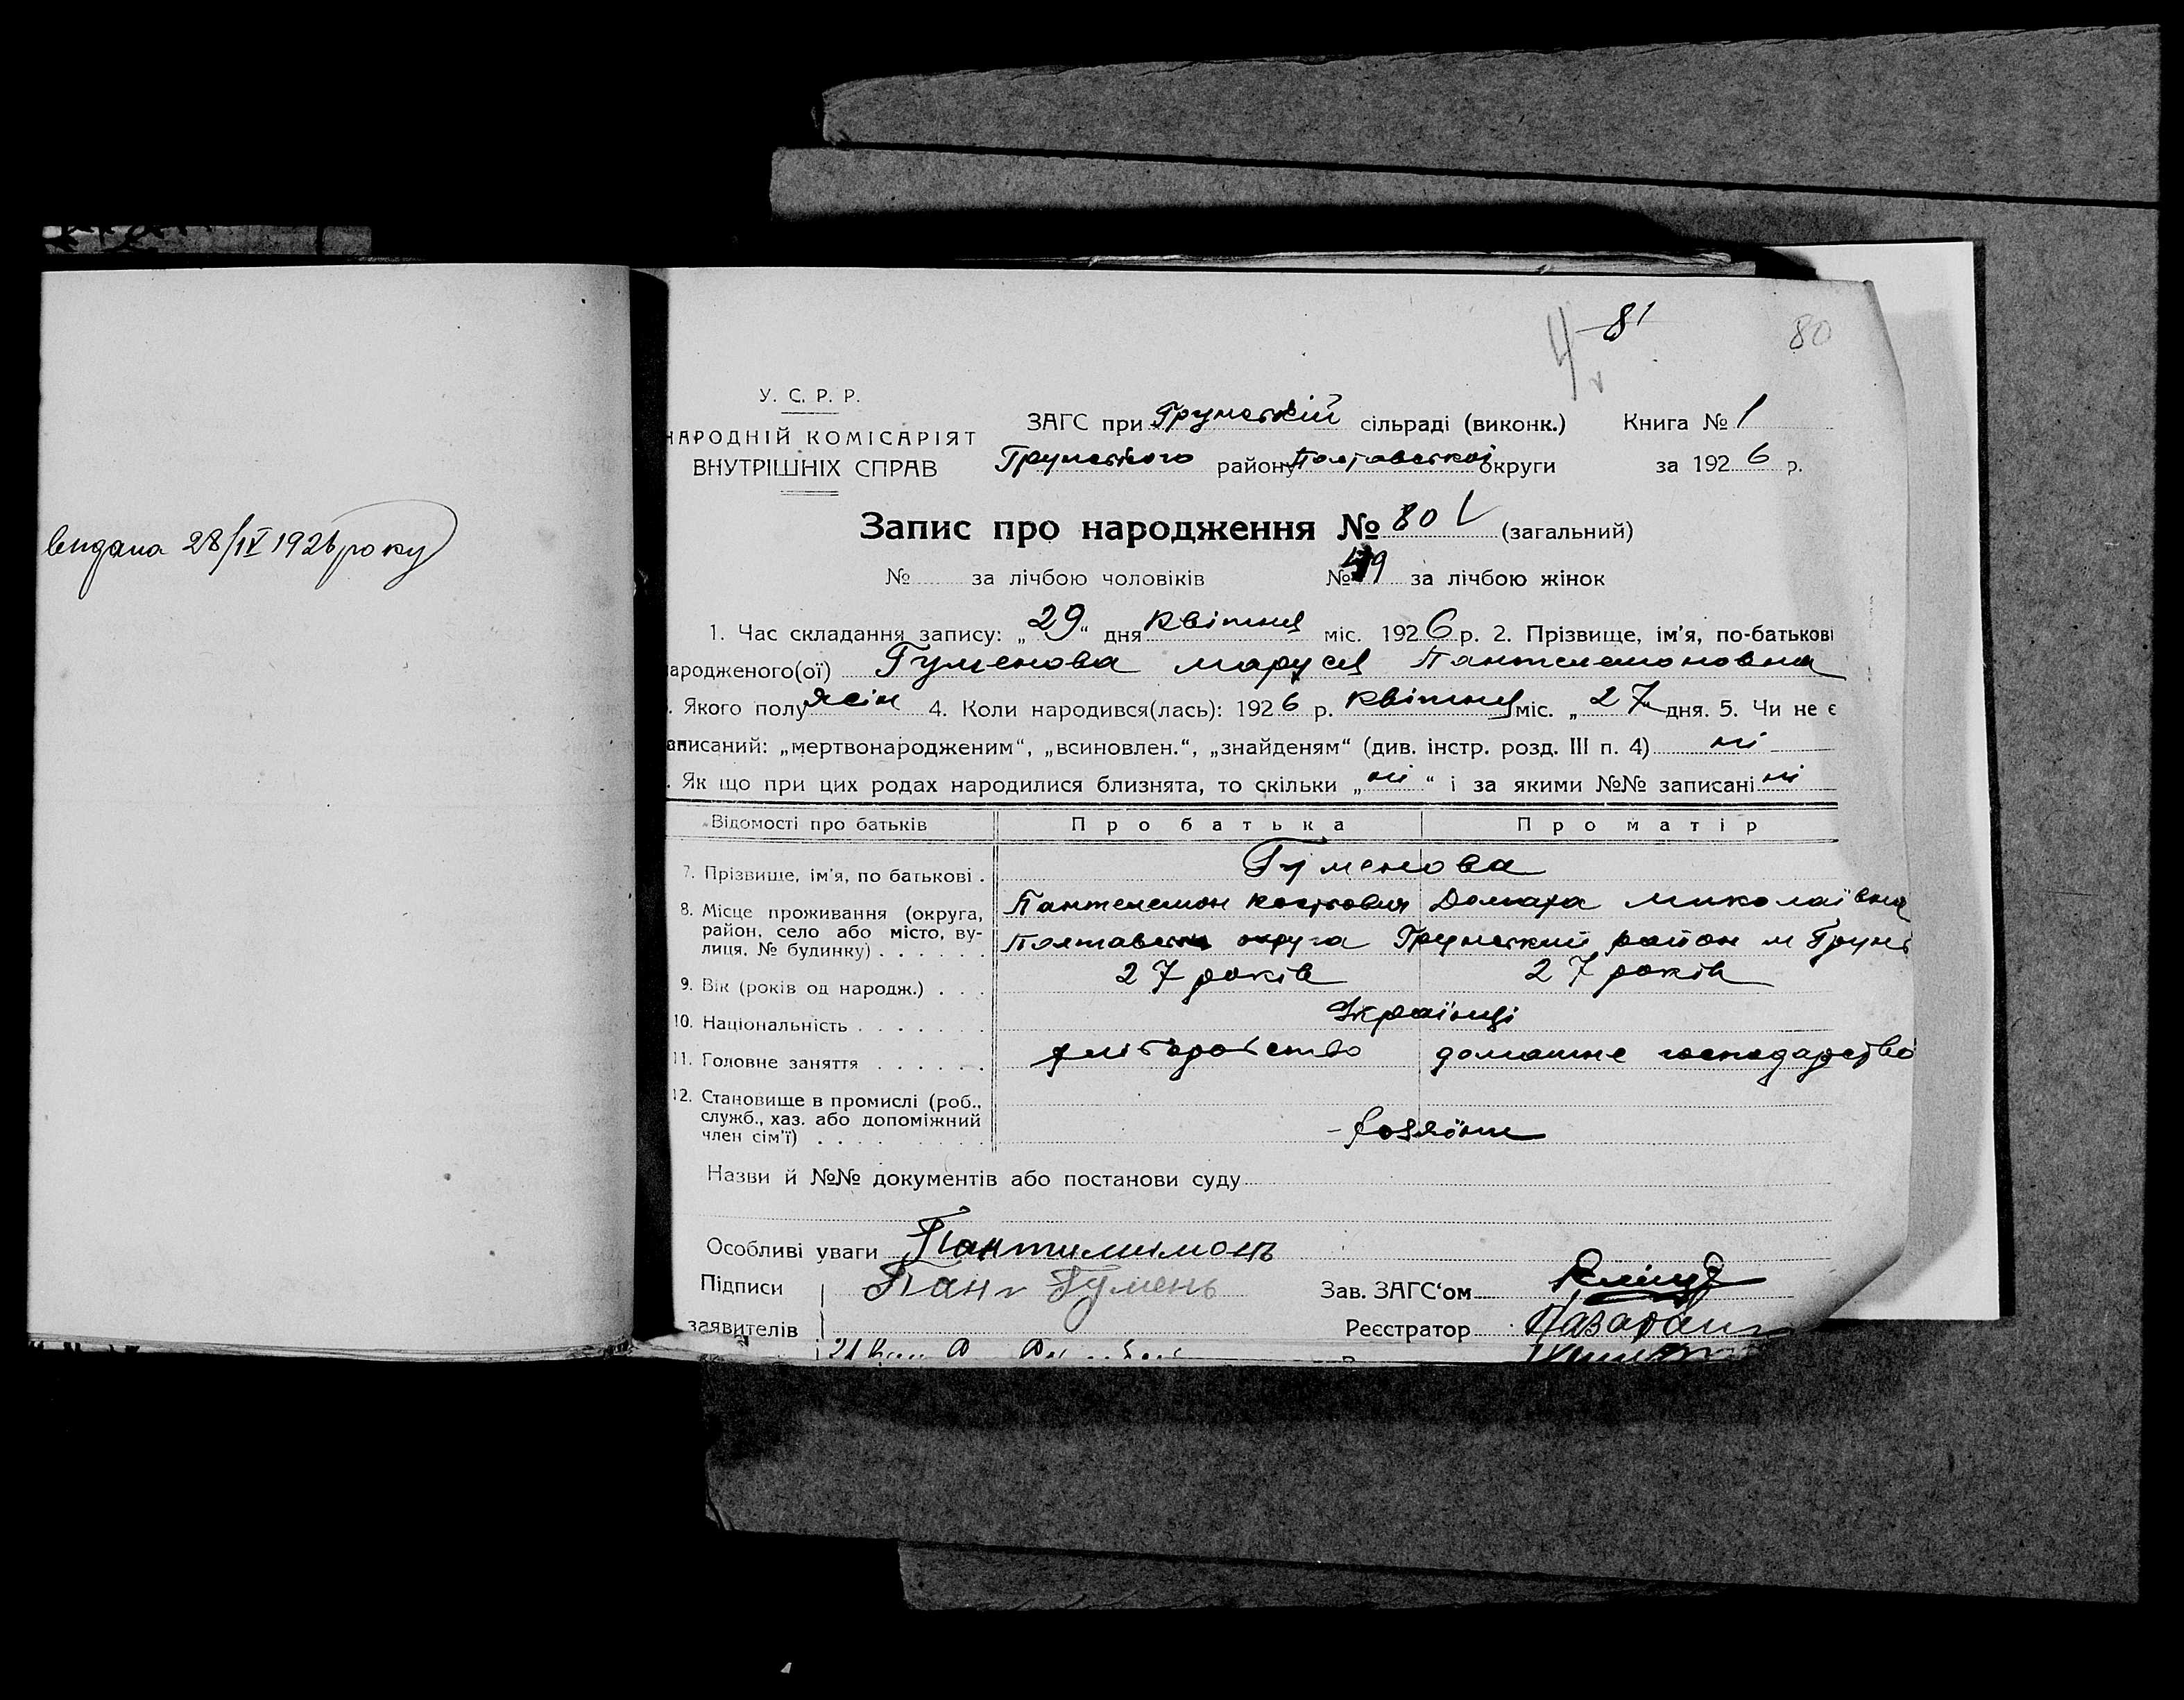 видана 28/IV 1926 року
81
80
У. С. Р. Р.
НАРОДНІЙ КОМІСАРІЯТ
ВНУТРІШНІХ СПРАВ
ЗАГС при Грунській сільраді (виконк.) Книга № 1
Грунського району Полтавської округи за 1926 р.
Запис про народження № 80 (загальний)
№ за лічбою чоловіків № 49 за лічбою жінок
1. Час складання запису: „29“ дня квітня міс. 1926 р. 2. Прізвище, ім'я, по-батькові
ародженого(ої) Гуменова Маруся Пантелемоновна
. Якого полу жін 4. Коли народився(лась): 1926 р. квітня міс. „27“ дня. 5. Чи не є
аписаний: „мертвонародженим“, „всиновлен.“, „знайденям“ (див. інстр. розд. III п. 4) ні
. Як що при цих родах народилися близнята, то скільки „ні“ і за якими №№ записані ні
Відомості про батьків Про батька Про матір
7. Прізвище, ім'я, по батькові . Гуменова
Пантелемон Домаха Миколаївна
8. Місце проживання (округа, район, село або місто, вулиця, № будинку) . . . . . . Полтавська округа Грунський район м Грунь
9. Вік (років од народж.) . . . 27 років 27 років
10. Національність . . . . . . . Українці
11. Головне заняття . . . . . . хліборобство домашнє господарство
12. Становище в промислі (роб., служб., хаз. або допоміжний член сім'ї) . . . . . . . .
Назви й №№ документів або постанови суду
Особливі уваги Пантилимонъ
Підписи Гумень Зав. ЗАГС'ом
заявителів Реєстратор